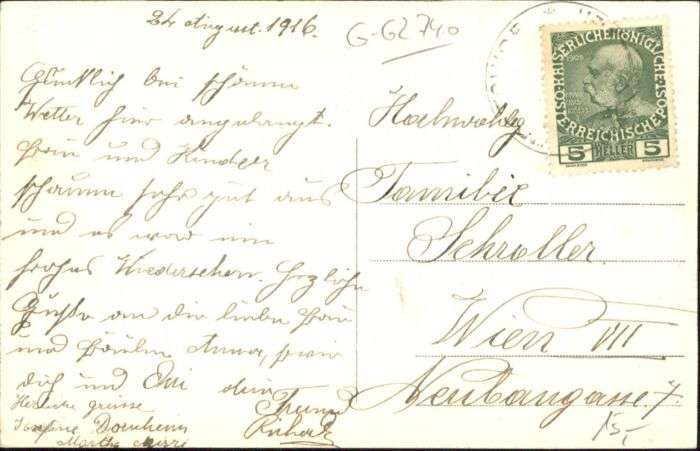 24 August. 1916.
G-G2740
Glücklich bei schönem
Wetter hier angelangt.
Frau und Kinder
schauen sehr gut aus
und es war ein
frohes Wiedersehen. Herzliche
Grüße an die liebe Frau
und Fräulein Anna, sowie
dich und
dein
Freund
Richard
Herzliche grüsse
Josefine
Martha
Familie
Schroller
Wien VII
Neubaugasse 7.
15,-
KAISERLICHE KÖNIGLICHE
ÖSTERREICHISCHE POST
1908
5 HELLER 5